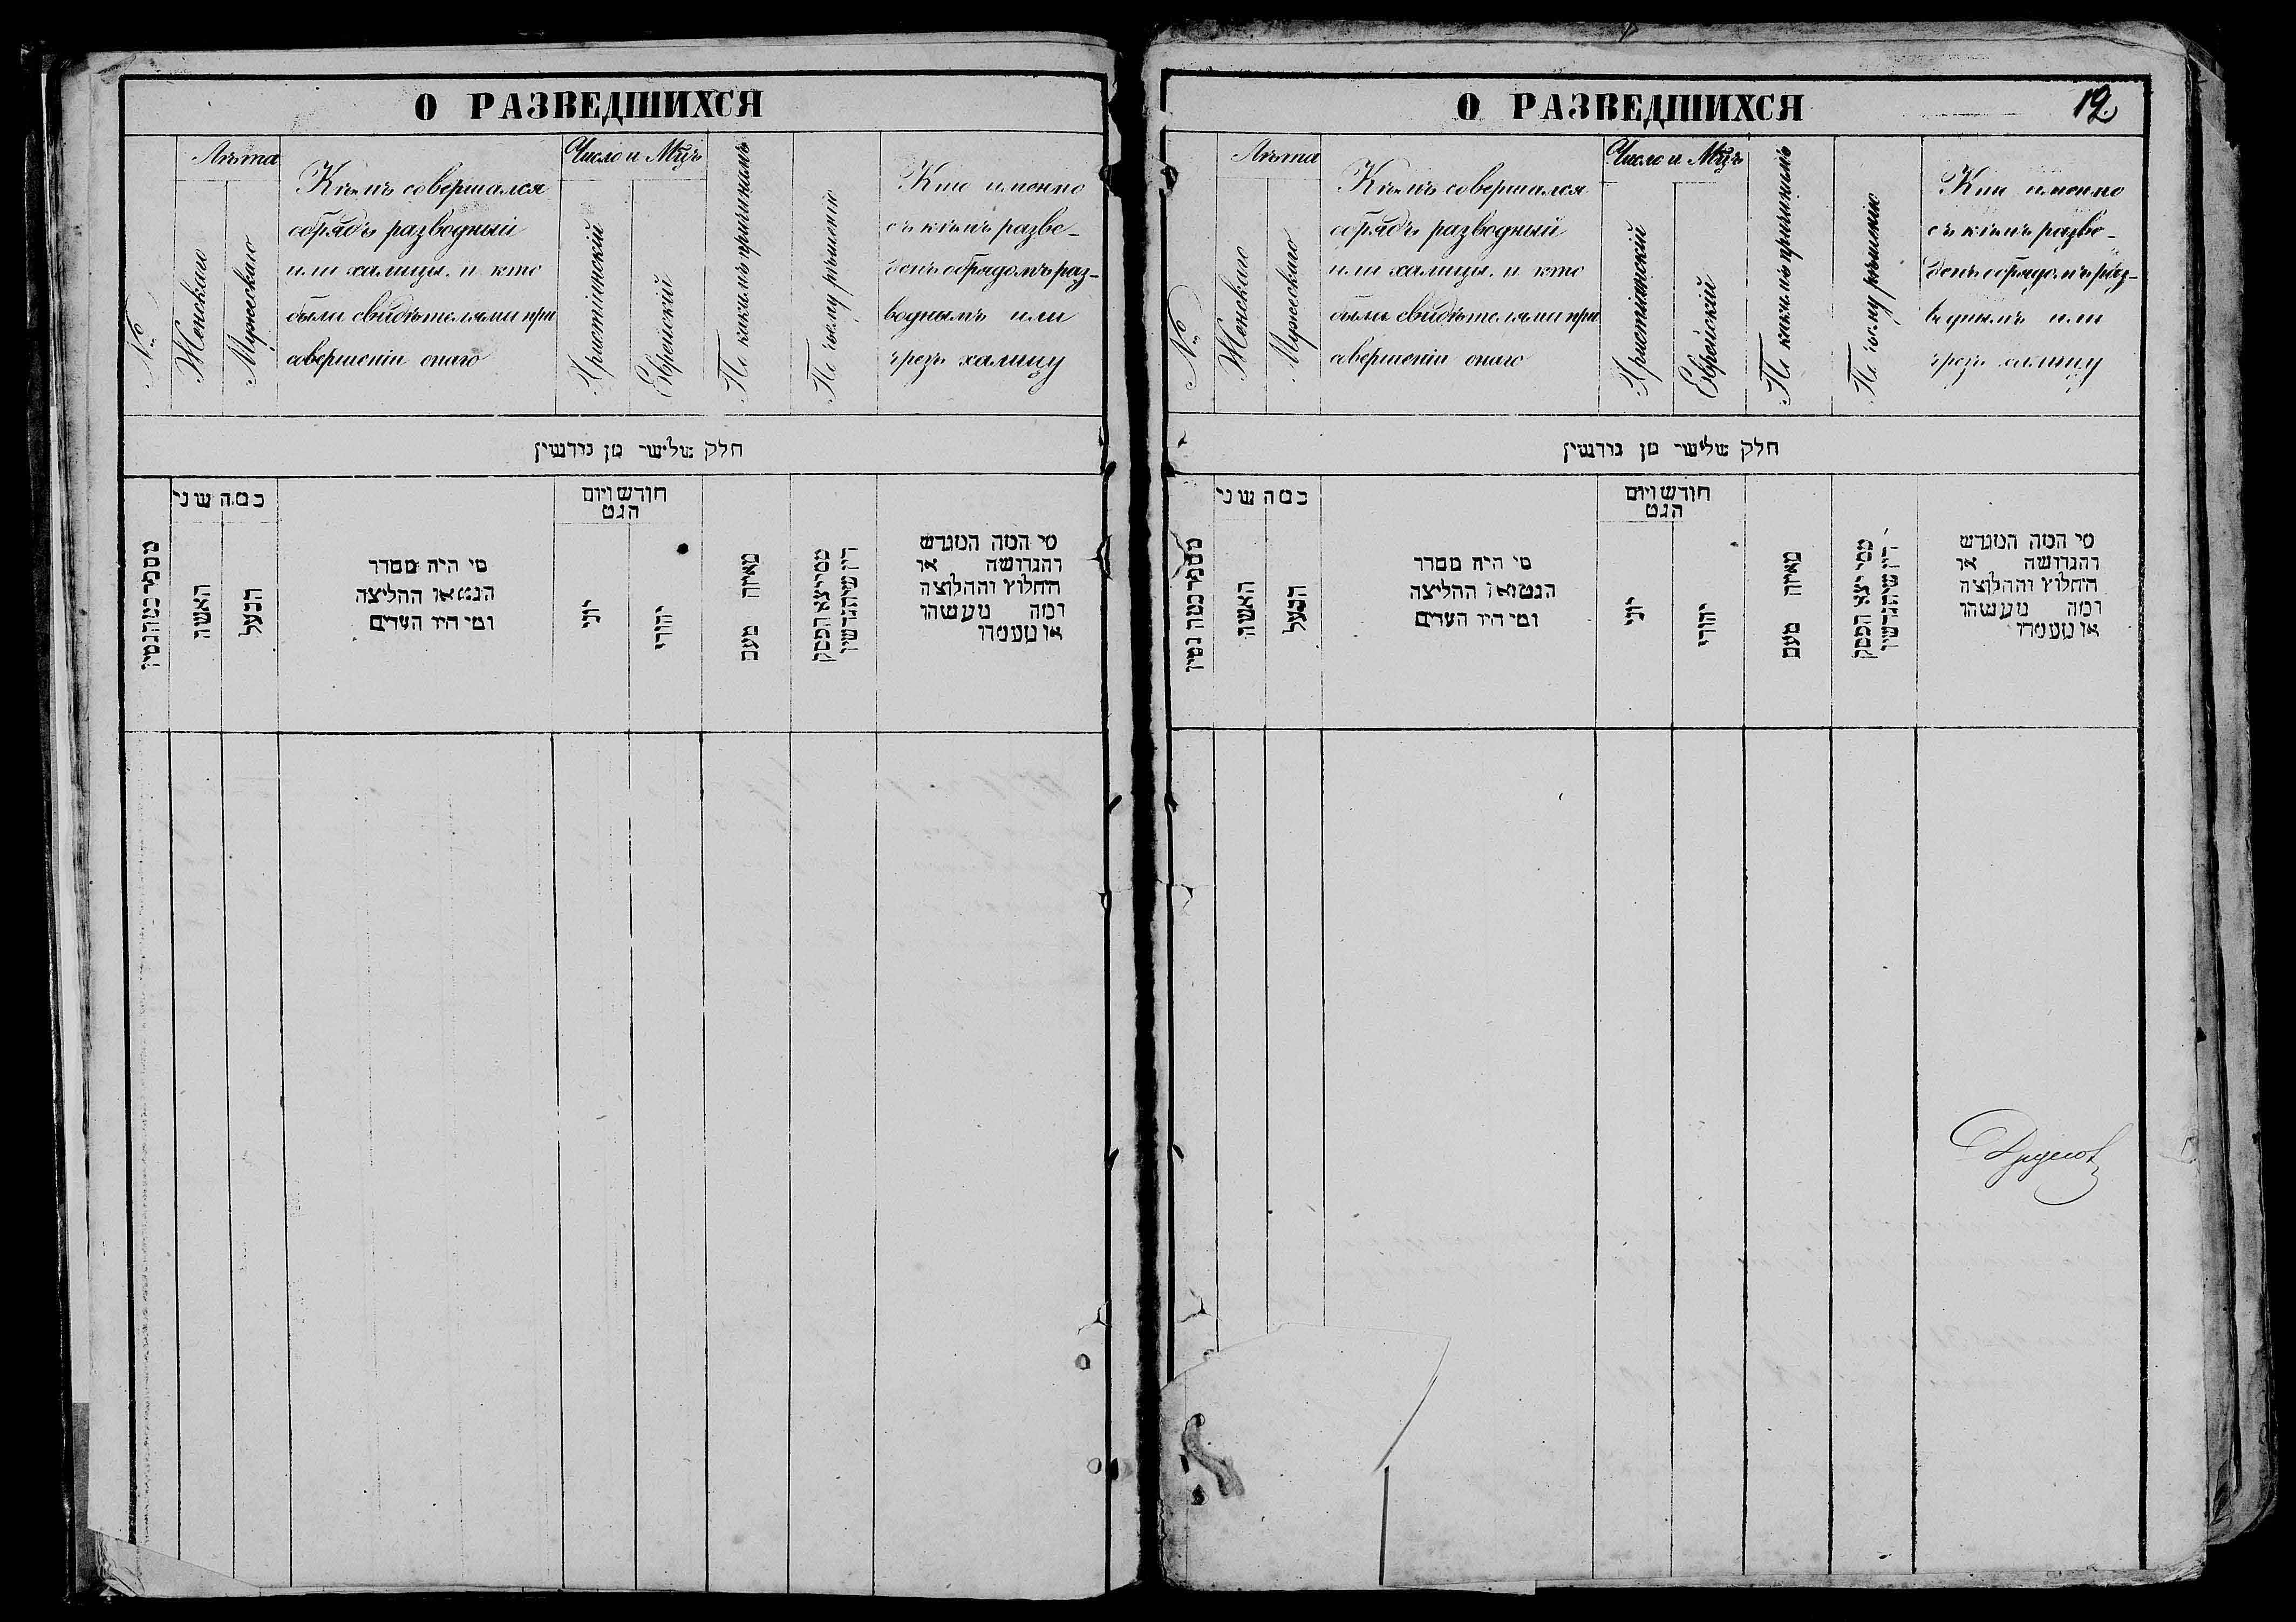 О РАЗВЕДШИХСЯ
№
Лѣта
Женскаго
Мужескаго
Кѣмъ совершался
обрядъ разводный
или халицы. и кто
были свидѣтелями при
совершеніи онаго
Число и Мцъ
Христіянскій
Еврейскій
По какимъ причинамъ
По чьему рѣшенію
Кто именно
съ кѣмъ разве-
денъ обрядомъ раз-
воднымъ или
чрезъ халицу
חלק שלישי מן גירושין
כמה שני
האשה
הבעל
מי היה מסדר
הגט או החליצה
ומי היו העדים
חודש ויום
הגט
יוני
יהודי
מאיזה טעם
ממי יצא הפסק
דין שיתגרשו
מי המה המגרש
והגרושה או
החלוץ והחלוצה
ומה מעשהו
או מעמדו
О РАЗВЕДШИХСЯ
12
№
Лѣта
Женскаго
Мужескаго
Кѣмъ совершался
обрядъ разводный
или халицы. и кто
были свидѣтелями при
совершеніи онаго
Число и Мцъ
Христіянскій
Еврейскій
По какимъ причинамъ
По чьему рѣшенію
Кто именно
съ кѣмъ разве-
денъ обрядомъ раз-
воднымъ или
чрезъ халицу
חלק שלישי מן גירושין
כמה שני
האשה
הבעל
מי היה מסדר
הגט או החליצה
ומי היו העדים
חודש ויום
הגט
יוני
יהודי
מאיזה טעם
ממי יצא הפסק
דין שיתגרשו
מי המה המגרש
והגרושה או
החלוץ והחלוצה
ומה מעשהו
או מעמדו